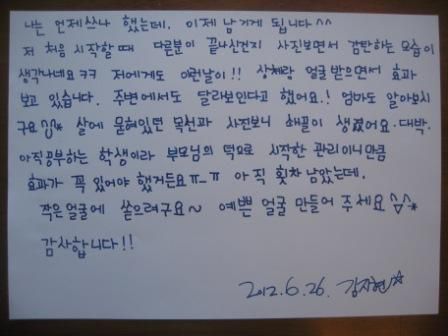 나는 언제쓰나 했는데. 이제 남기게 됩니다^^
저 처음 시작할때 다른분이 끝나신건지 사진보면서 감탄하는 모습이
생각나네요ㅋㅋ 저에게도 이런날이!! 상체랑 얼굴받으면서 효과
보고 있습니다. 주변에서도 달라보인다고 했어요.! 엄마도 알아보시
구요^^* 살에 묻혀있던 목선과 사진보니 쇄골이 생겼어요. 대박.
아직공부하는 학생이라 부모님의 덕으로 시작한 관리이니만큼
효과가 꼭 있어야 했거든요ㅠ_ㅠ 아직 횟차 남았는데.
작은얼굴에 쏟으려구요~ 예쁜 얼굴 만들어 주세요^^*
감사합니다!!
2012.6.26.